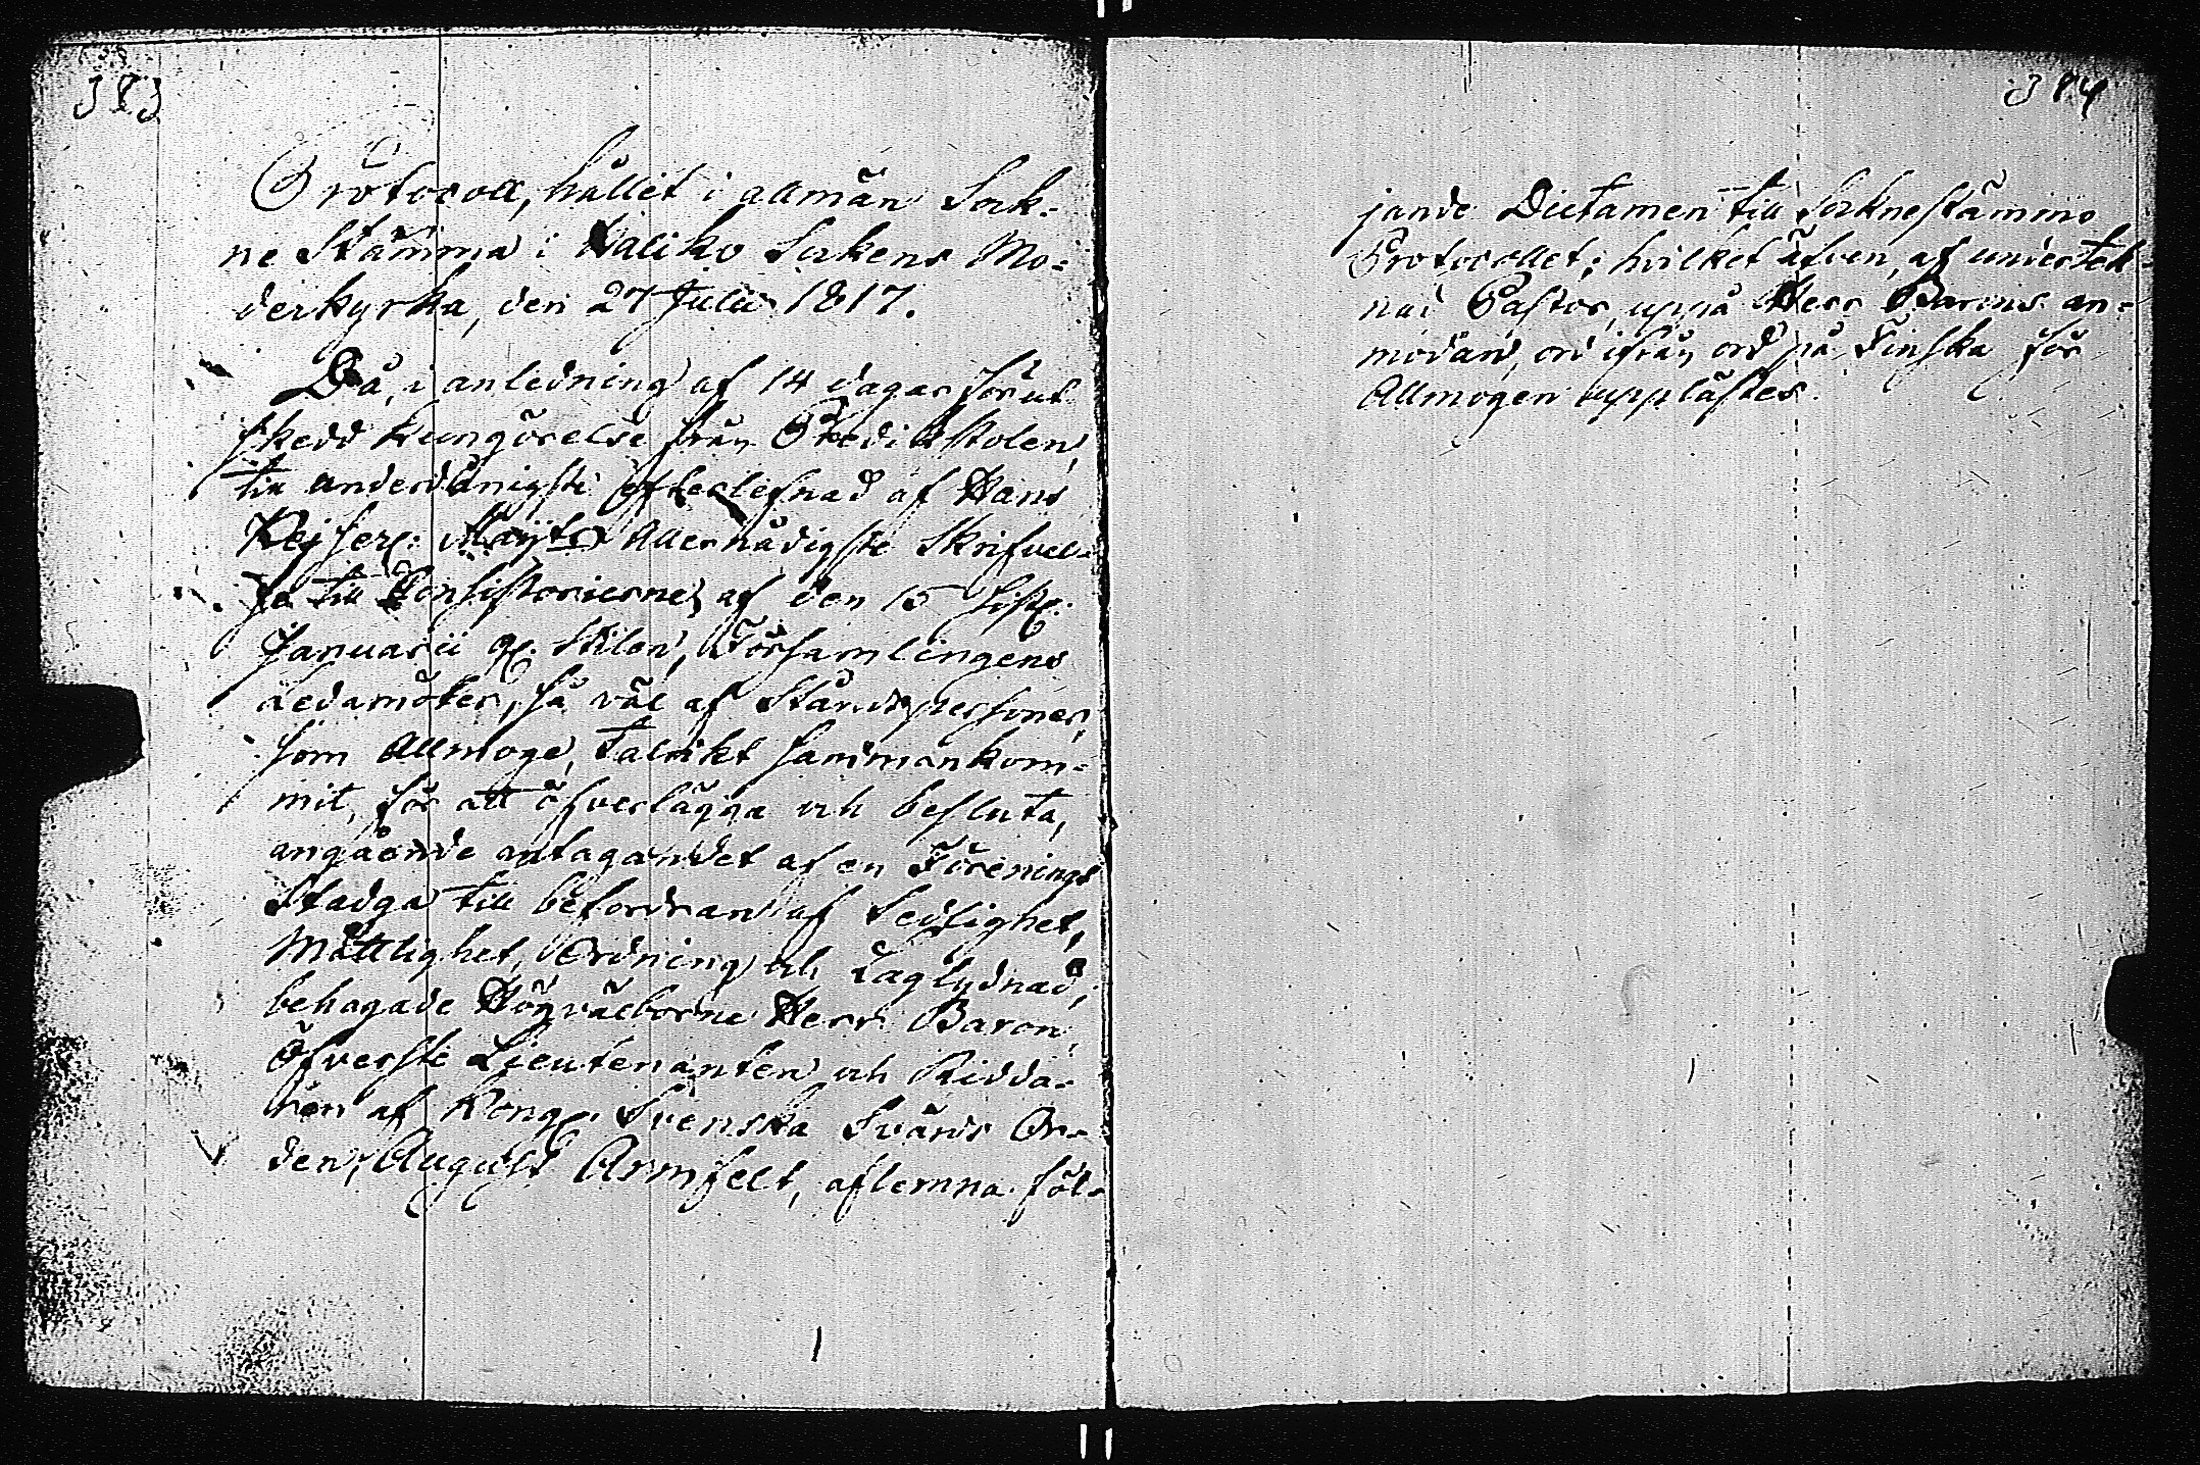 383
Protocoll, hållet i allmän Sok-
ne Stämma i Haliko Sokens Mo-
derkyrka, den 27 Julii 1817.
Då, i anledning af 14 dagar förut
skedd kungörelse från Predikstolen,
till underdånigste efterlefnad af Hans
Kejserl: Maijts Allernådigste Skrifvel-
se till Consistorierne, af den 15 sistl:
Januarii gl. Stilen, Församlingens
Ledamöter, så väl af Ståndspersoner,
som Allmoge, talrikt samman kom-
mit, för att öfverlägga och besluta,
angående antagandet af en Förenings
Stadga till befordran af Sedlighet,
Måttlighet, Ordning och Laglydnad,
behagade Högvälborne Herr Baron,
Öfverste Lieutenanten och Ridda-
ren af Kongl. Svenska Svärds Or-
den, August Armfelt, aflemna föl-
384
jande Dictamen till Sokne stämmo
Protocollet; hvilket äfven, af underteck-
nad Pastor, uppå Herr Barons an-
modan, ord ifrån ord på Finska för
Allmogen upplästes.